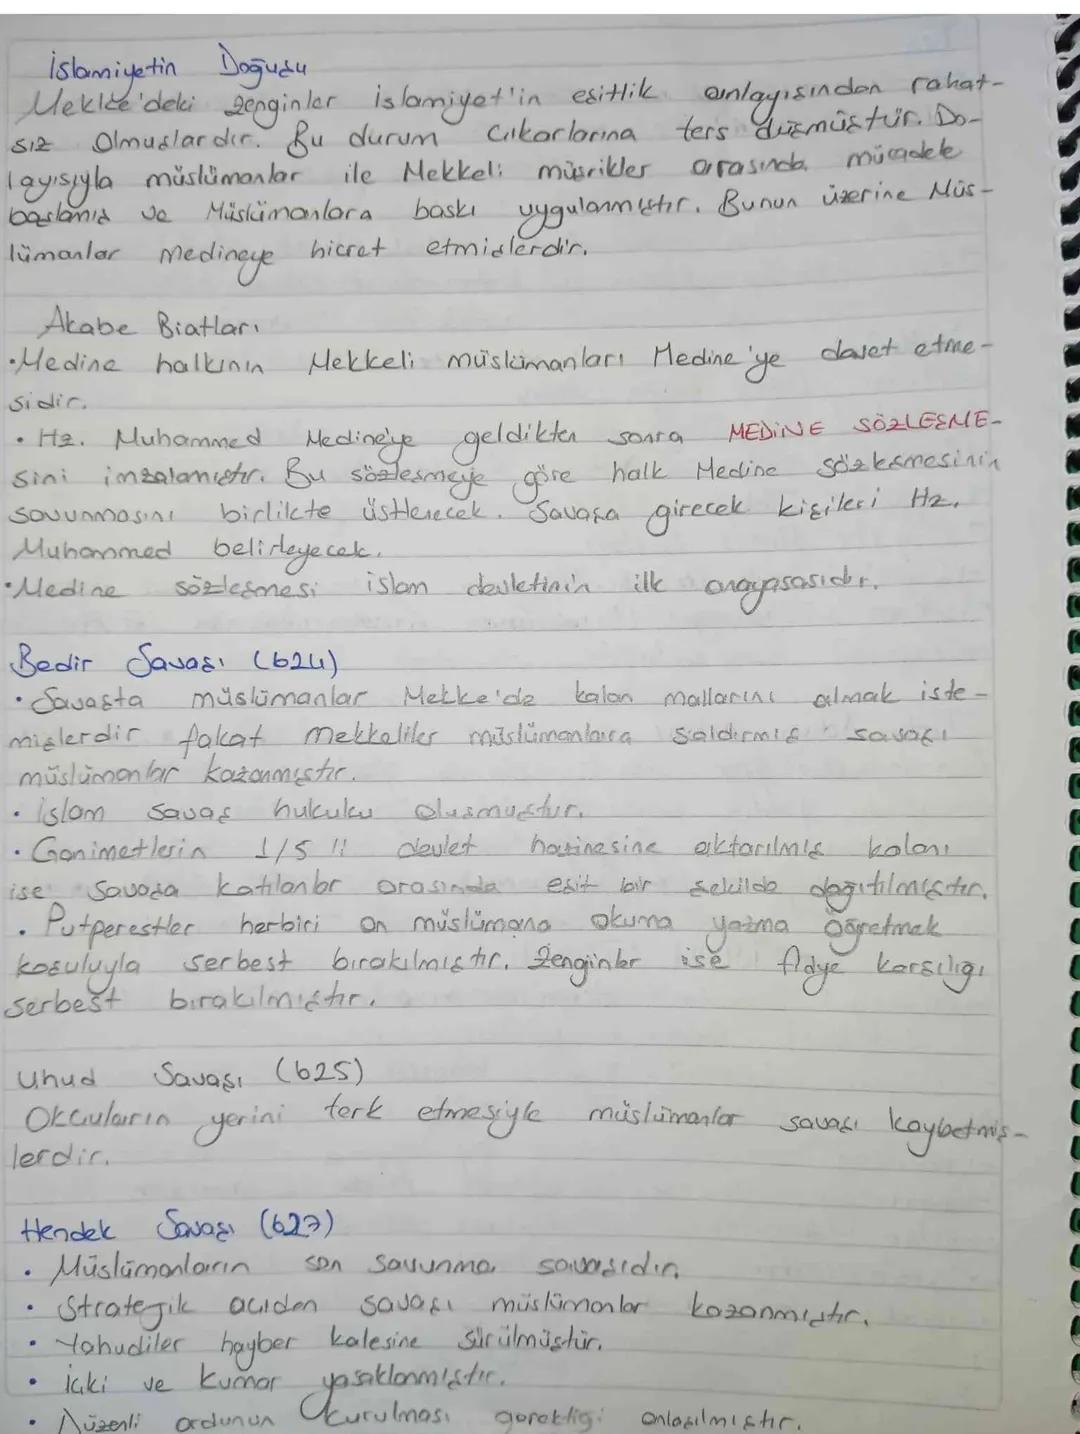 İslamiyetin Doğuşu
Mekke'deki zenginler islamiyet'in eşitlik anlayışından rahat-
sız Olmuşlardır. Bu durum Çıkarlarına ters düşmüştür. Do-
layısıyla müslümanlar ile Mekkeli müşrikler arasında mücadele
başlamış ve Müslümanlara baskı uygulanmıştır. Bunun üzerine Müs-
lümanlar Medineye hicret etmişlerdir.
Akabe Biatları
• Medine halkının Mekkeli müslümanları Medine'ye davet etme-
sidir.
• Hz. Muhammed Medine'ye geldikten sonra MEDİNE SÖZLEŞME-
sini imzalamıştır. Bu sözleşmeye göre halk Medine sözleşmesinin
savunmasını birlikte üstlenecek. Savaşa girecek kişileri Hz.
Muhammed belirleyecek.
• Medine sözleşmesi islam devletinin ilk anayasasıdır.
Bedir Savaşı (624)
• Savaşta müslümanlar Mekke'de kalan mallarını almak iste-
mişlerdir fakat mekkeliler müslümanlara saldırmış savaşı
müslümanlar kazanmıştır.
• İslam savaş hukuku oluşmuştur.
• Ganimetlerin 1/5'i devlet hazinesine aktarılmış kalanı
ise savaşa katılanlar arasında eşit bir şekilde dağıtılmıştır.
• Putperestler herbiri on müslümana okuma yazma öğretmek
koşuluyla serbest bırakılmıştır. Zenginler ise fidye karşılığı
serbest bırakılmıştır.
Uhud Savaşı (625)
Okçuların yerini terk etmesiyle müslümanlar savaşı kaybetmiş-
lerdir.
Hendek Savaşı (627)
• Müslümanların son savunma savaşıdır.
• Stratejik açıdan savaşı müslümanlar kazanmıştır.
• Yahudiler hayber kalesine sürülmüştür.
• İçki ve kumar yasaklanmıştır.
• Düzenli ordunun kurulması gerektiği anlaşılmıştır.